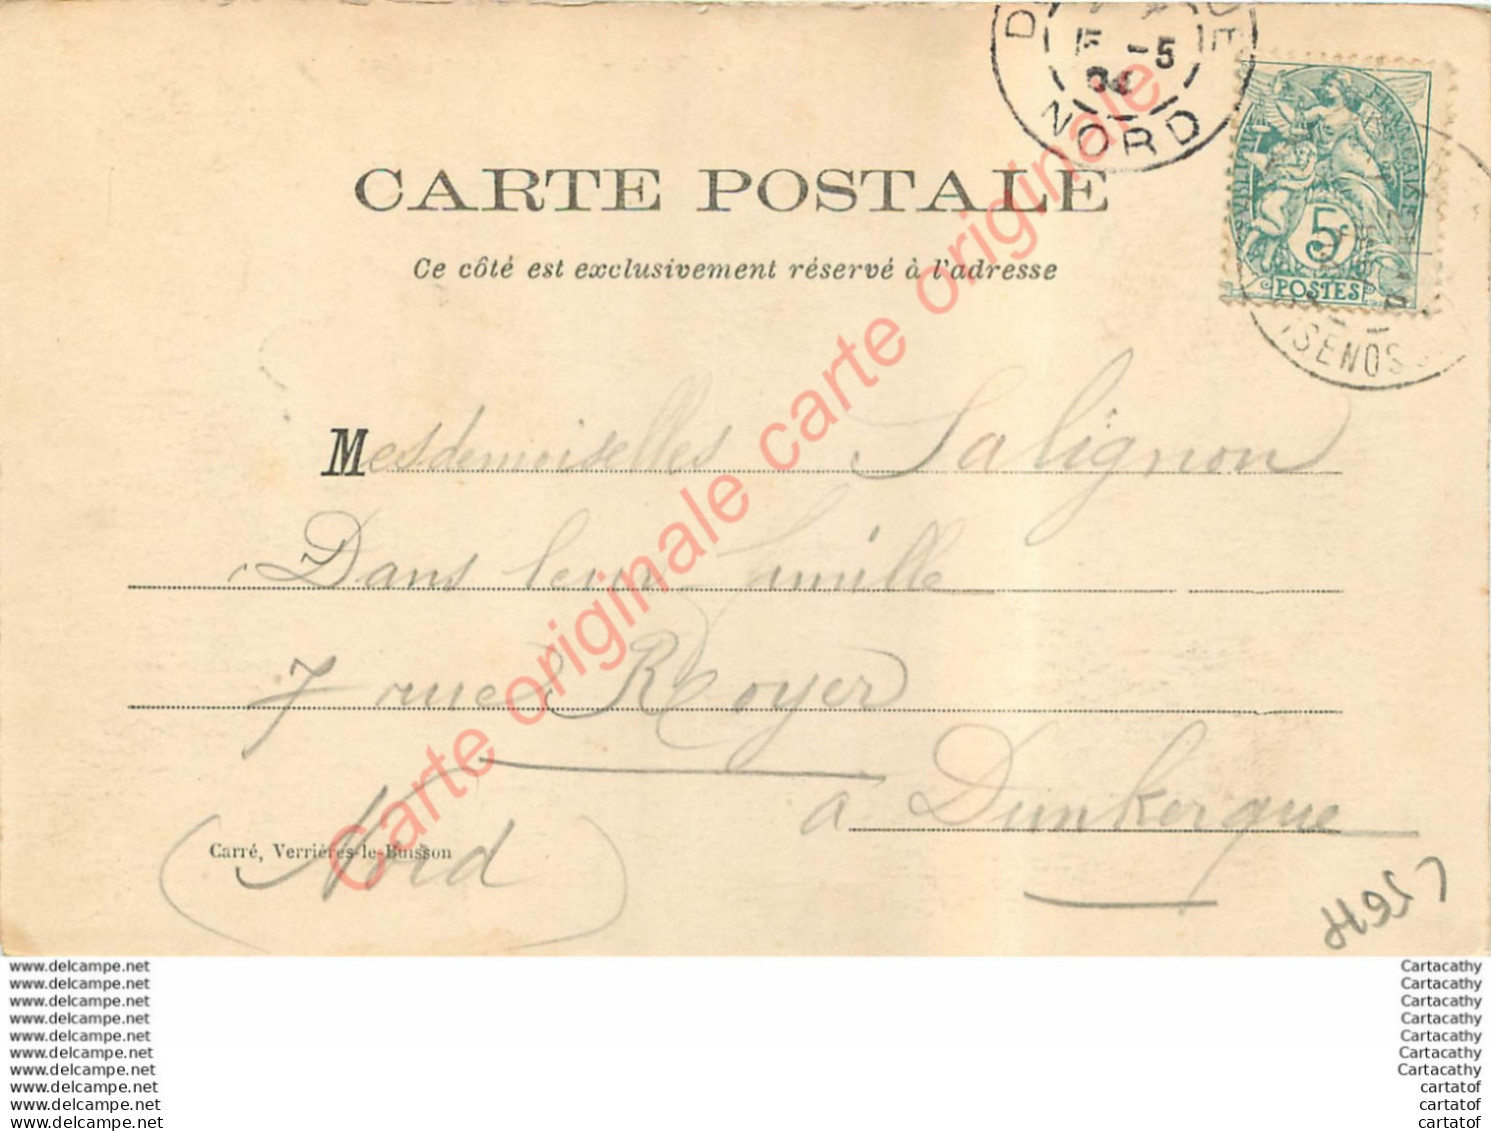 NORD
-5
04
CARTE POSTALE
Ce côté est exclusivement réservé à l'adresse
RÉPUBLIQUE FRANÇAISE
5
POSTES
Mesdemoiselles Salignon
Dans leur famille
7 rue Royer
à Dunkerque
(Nord)
Carré, Verrières-le-Buisson
Carte originale carte originale carte originale
www.delcampe.net Cartacathy
www.delcampe.net Cartacathy
www.delcampe.net Cartacathy
www.delcampe.net Cartacathy
www.delcampe.net Cartacathy
www.delcampe.net Cartacathy
www.delcampe.net Cartacathy
www.delcampe.net cartatof
www.delcampe.net cartatof
www.delcampe.net cartatof